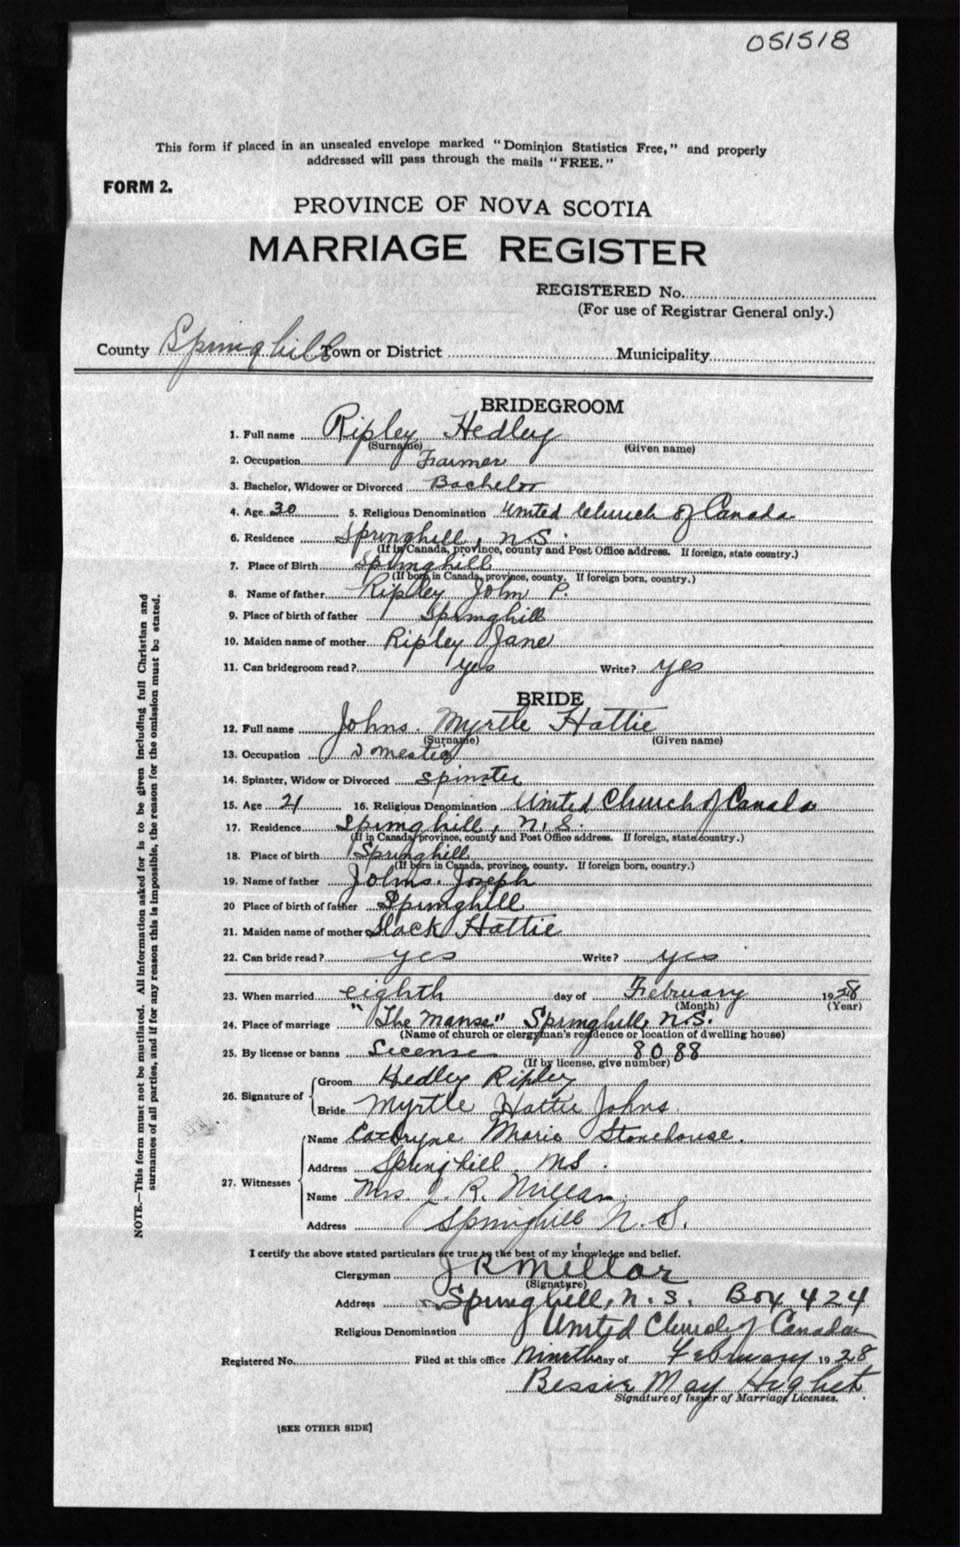 051518
This form if placed in an unsealed envelope marked "Dominion Statistics Free," and properly
addressed will pass through the mails "FREE."
FORM 2.
PROVINCE OF NOVA SCOTIA
MARRIAGE REGISTER
REGISTERED No.
(For use of Registrar General only.)
County Springhill Town or District Municipality
BRIDEGROOM
1. Full name Ripley Hedley
(Surname) (Given name)
2. Occupation Farmer
3. Bachelor, Widower or Divorced Bachelor
4. Age 30 5. Religious Denomination United Church of Canada
6. Residence Springhill, N.S.
(If in Canada, province, county and Post Office address. If foreign, state country.)
7. Place of Birth Springhill
(If born in Canada, province, county. If foreign born, country.)
8. Name of father Ripley John P.
9. Place of birth of father Springhill
10. Maiden name of mother Ripley Jane
11. Can bridegroom read? yes Write? yes
BRIDE
12. Full name Johns. Myrtle Hattie
(Surname) (Given name)
13. Occupation Domestic
14. Spinster, Widow or Divorced Spinster
15. Age 21 16. Religious Denomination United Church of Canada
17. Residence Springhill, N.S.
(If in Canada, province, county and Post Office address. If foreign, state country.)
18. Place of birth Springhill
(If born in Canada, province, county. If foreign born, country.)
19. Name of father Johns. Joseph
20 Place of birth of father Springhill
21. Maiden name of mother Slack Hattie
22. Can bride read? yes Write? yes
23. When married eighth day of February 1928
(Month) (Year)
24. Place of marriage "The Manse" Springhill, N.S.
(Name of church or clergyman's residence or location of dwelling house)
25. By license or banns License 8088
(If by license, give number)
26. Signature of Groom Hedley Ripley
Bride Myrtle Hattie Johns.
27. Witnesses
Name Cathryne Marie Stonehouse.
Address Springhill NS.
Name Mrs. J. R. Millar.
Address Springhill N.S.
I certify the above stated particulars are true to the best of my knowledge and belief.
Clergyman J R Millar
(Signature)
Address Springhill, N.S. Box 424
Religious Denomination United Church of Canada
Registered No. Filed at this office Ninth day of February 1928
Bessie May Hughet.
Signature of Issuer of Marriage Licenses.
[SEE OTHER SIDE]
NOTE.—This form must not be mutilated. All information asked for is to be given including full Christian and
surnames of all parties, and if for any reason this is impossible, the reason for the omission must be stated.